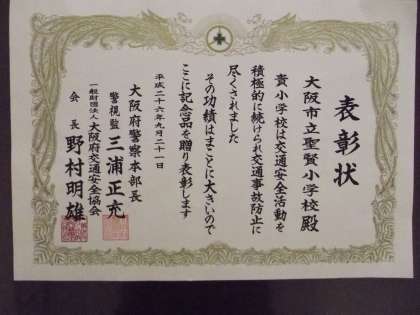 表彰状
大阪市立聖賢小学校 殿
貴小学校は交通安全活動を
積極的に続けられ交通事故防止に
尽くされました
その功績はまことに大きいので
ここに記念品を贈り表彰します
平成二十六年九月二十一日
大阪府警察本部長
警視監 三浦正充
一般財団法人 大阪府交通安全協会
会長 野村明雄